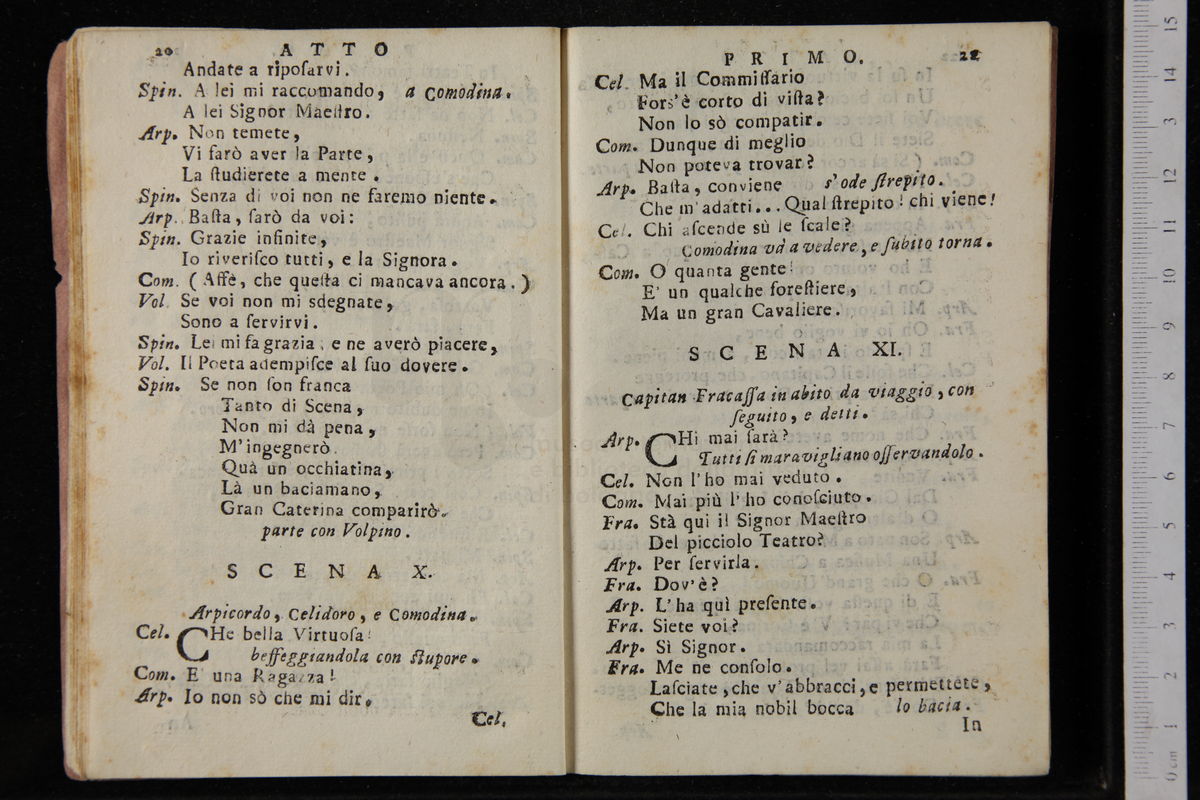 20 ATTO
Andate a ripoſarvi.
Spin. A lei mi raccomando, a Comodina.
A lei Signor Maeſtro.
Arp. Non temete,
Vi farò aver la Parte,
La ſtudierete a mente.
Spin. Senza di voi non ne faremo niente.
Arp. Baſta, ſarò da voi:
Spin. Grazie infinite,
Io riveriſco tutti, e la Signora.
Com. (Affè, che queſta ci mancava ancora.)
Vol. Se voi non mi sdegnate,
Sono a ſervirvi.
Spin. Lei mi fa grazia; e ne averò piacere,
Vol. Il Poeta adempiſce al ſuo dovere.
Spin. Se non ſon franca
Tanto di Scena,
Non mi dà pena,
M'ingegnerò.
Quà un occhiatina,
Là un baciamano,
Gran Caterina comparirò.
parte con Volpino.
SCENA X.
Arpicordo, Celidoro, e Comodina.
Cel. CHe bella Virtuoſa!
beffeggiandola con ſtupore.
Com. E' una Ragazza!
Arp. Io non sò che mi dir.
Cel.
PRIMO. 21
Cel. Ma il Commiſſario
Fors'è corto di viſta?
Non lo sò compatir.
Com. Dunque di meglio
Non poteva trovar?
Arp. Baſta, conviene s'ode ſtrepito.
Che m'adatti... Qual ſtrepito! chi viene!
Cel. Chi aſcende sù le ſcale?
Comodina và a vedere, e ſubito torna.
Com. O quanta gente!
E' un qualche foreſtiere,
Ma un gran Cavaliere.
SCENA XI.
Capitan Fracaſſa in abito da viaggio, con
ſeguito, e detti.
Arp. CHi mai ſarà?
Tutti ſi maravigliano oſſervandolo.
Cel. Non l'ho mai veduto.
Com. Mai più l'ho conoſciuto.
Fra. Stà qui il Signor Maeſtro
Del picciolo Teatro?
Arp. Per ſervirla.
Fra. Dov'è?
Arp. L'ha quì preſente.
Fra. Siete voi?
Arp. Sì Signor.
Fra. Me ne conſolo.
Laſciate, che v'abbracci, e permettete,
Che la mia nobil bocca lo bacia.
In